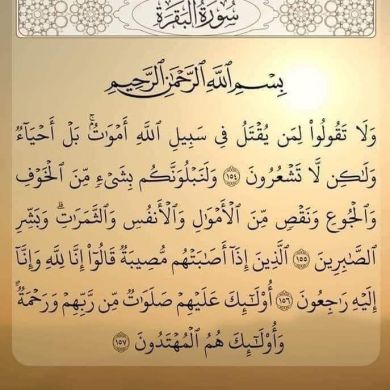 سُورَةُ الْبَقَرَةِ
بِسْمِ اللَّهِ الرَّحْمَٰنِ الرَّحِيمِ
وَلَا تَقُولُوا۟ لِمَن يُقْتَلُ فِى سَبِيلِ ٱللَّهِ أَمْوَٰتٌۢ ۚ بَلْ أَحْيَآءٌ
وَلَٰكِن لَّا تَشْعُرُونَ ١٥٤ وَلَنَبْلُوَنَّكُم بِشَىْءٍ مِّنَ ٱلْخَوْفِ
وَٱلْجُوعِ وَنَقْصٍ مِّنَ ٱلْأَمْوَٰلِ وَٱلْأَنفُسِ وَٱلثَّمَرَٰتِ ۗ وَبَشِّرِ
ٱلصَّٰبِرِينَ ١٥٥ ٱلَّذِينَ إِذَآ أَصَٰبَتْهُم مُّصِيبَةٌ قَالُوٓا۟ إِنَّا لِلَّهِ وَإِنَّآ
إِلَيْهِ رَٰجِعُونَ ١٥٦ أُو۟لَٰٓئِكَ عَلَيْهِمْ صَلَوَٰتٌ مِّن رَّبِّهِمْ وَرَحْمَةٌ ۖ
وَأُو۟لَٰٓئِكَ هُمُ ٱلْمُهْتَدُونَ ١٥٧